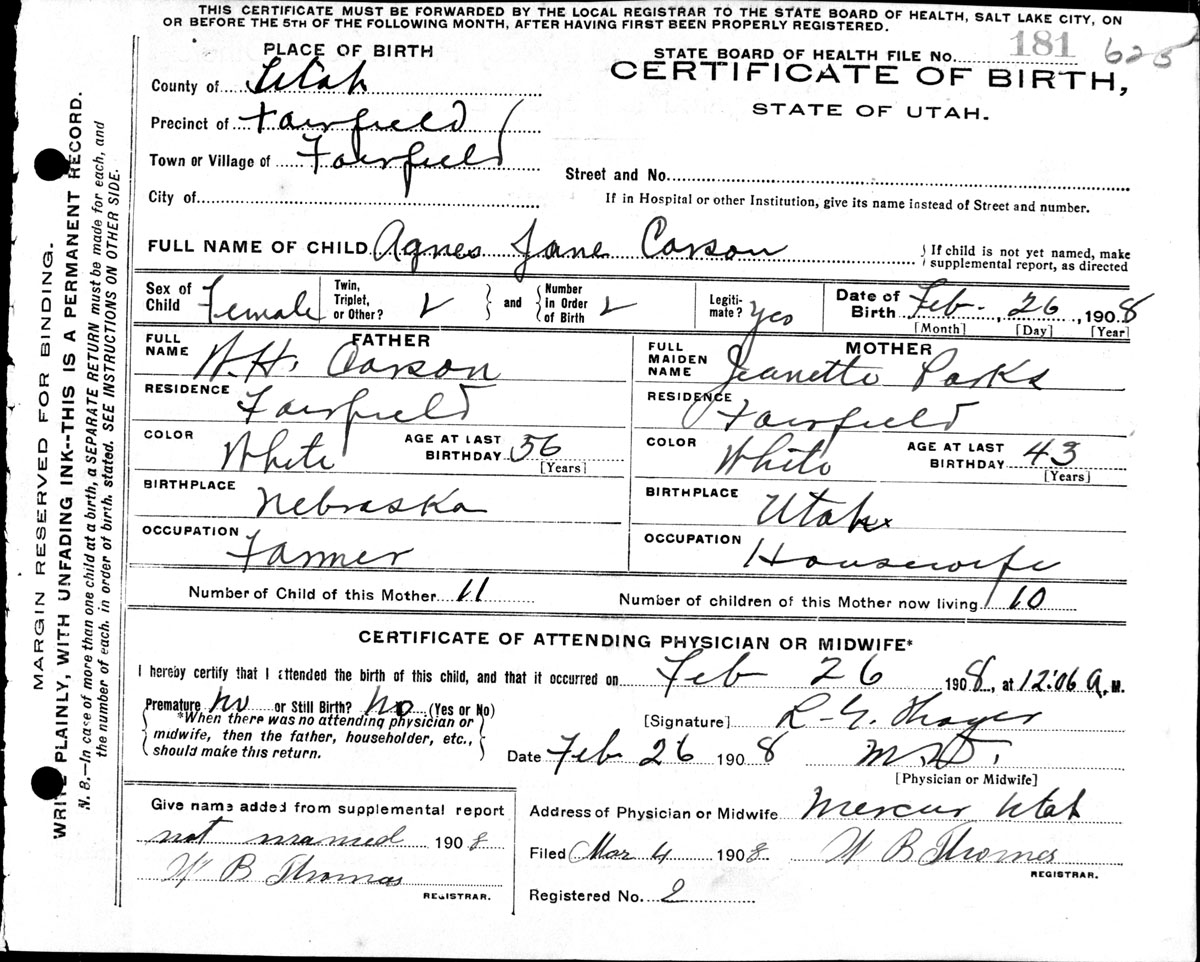 THIS CERTIFICATE MUST BE FORWARDED BY THE LOCAL REGISTRAR TO THE STATE BOARD OF HEALTH, SALT LAKE CITY, ON
OR BEFORE THE 5TH OF THE FOLLOWING MONTH, AFTER HAVING FIRST BEEN PROPERLY REGISTERED.
PLACE OF BIRTH
STATE BOARD OF HEALTH FILE No. 181 625
CERTIFICATE OF BIRTH,
STATE OF UTAH.
County of Utah
Precinct of Fairfield
Town or Village of Fairfield
Street and No.
City of
If in Hospital or other Institution, give its name instead of Street and number.
FULL NAME OF CHILD Agnes Jane Carson
If child is not yet named, make
supplemental report, as directed
Sex of Child Female
Twin, Triplet, or Other? 2 and Number in Order of Birth 2
Legitimate? Yes
Date of Birth Feb. 26, 1908
[Month] [Day] [Year]
FATHER
FULL NAME W. H. Carson
RESIDENCE Fairfield
COLOR White AGE AT LAST BIRTHDAY 56
[Years]
BIRTHPLACE Nebraska
OCCUPATION Farmer
MOTHER
FULL MAIDEN NAME Jeanette Parks
RESIDENCE Fairfield
COLOR White AGE AT LAST BIRTHDAY 43
[Years]
BIRTHPLACE Utah
OCCUPATION Housewife
Number of Child of this Mother 11 Number of children of this Mother now living 10
CERTIFICATE OF ATTENDING PHYSICIAN OR MIDWIFE*
I hereby certify that I attended the birth of this child, and that it occurred on Feb 26 1908, at 12:06 A. M.
Premature No or Still Birth? No (Yes or No)
*When there was no attending physician or
midwife, then the father, householder, etc.,
should make this return.
[Signature] L. G. Thayer
Date Feb 26 1908 M.D.
[Physician or Midwife]
Give name added from supplemental report
not named 1908
W B Thomas
REGISTRAR.
Address of Physician or Midwife Mercur Utah
Filed Mar 4 1908. W B Thomas
REGISTRAR.
Registered No. 2
MARGIN RESERVED FOR BINDING.
WRITE PLAINLY, WITH UNFADING INK--THIS IS A PERMANENT RECORD.
N. B.—In case of more than one child at a birth, a SEPARATE RETURN must be made for each, and
the number of each, in order of birth, stated. SEE INSTRUCTIONS ON OTHER SIDE.